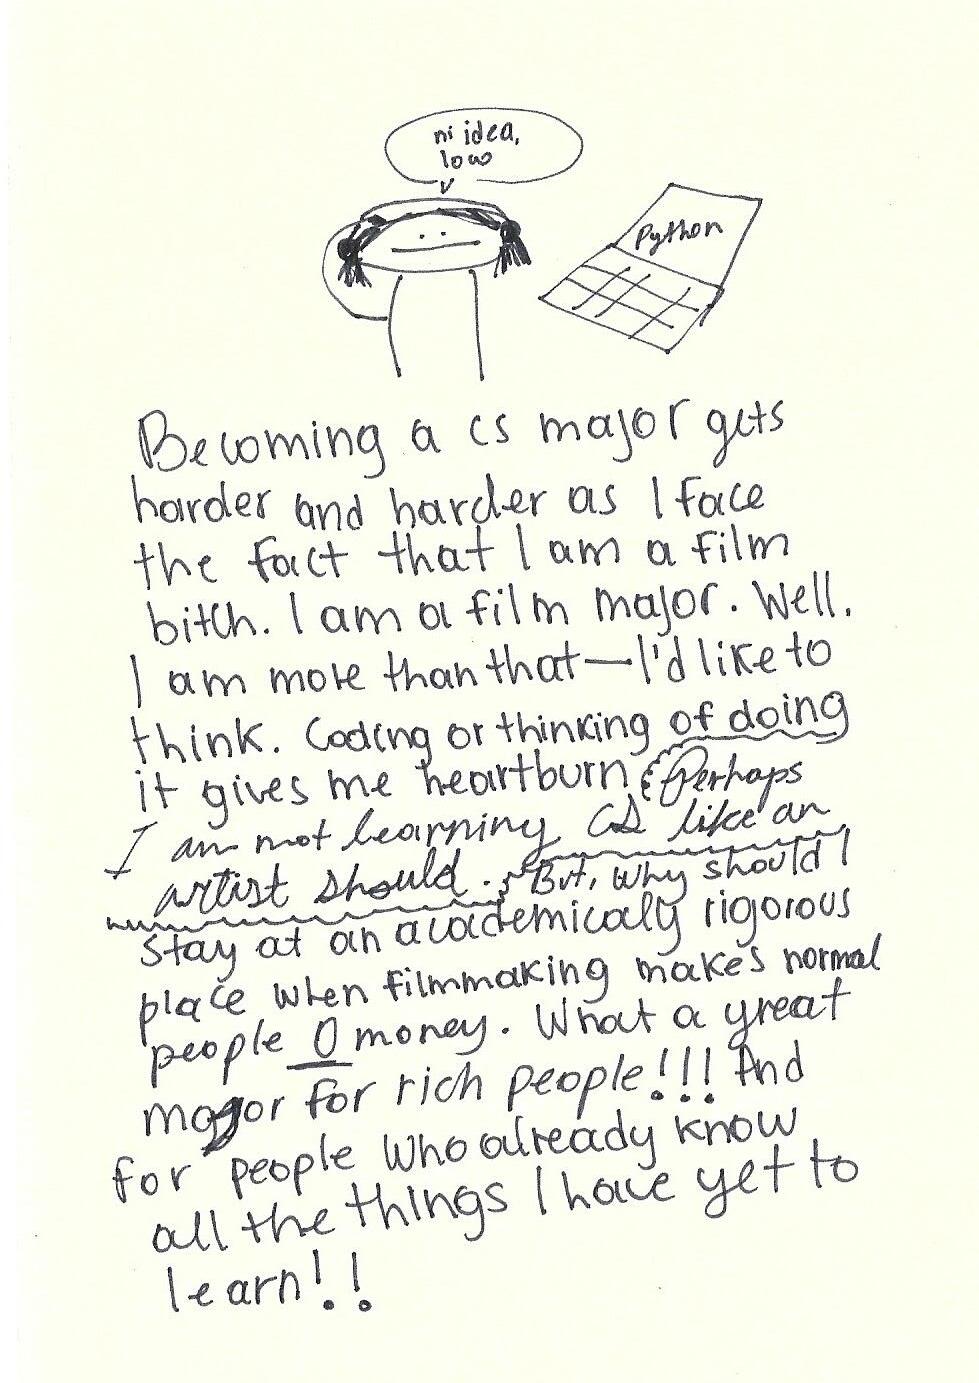 ni idea,
low
Python
Becoming a cs major gets
harder and harder as I face
the fact that I am a film
bitch. I am a film major. Well.
I am more than that—I'd like to
think. Coding or thinking of doing
it gives me heartburn. Perhaps
I am not learning CS like an
artist should. But, why should I
stay at an academicaly rigorous
place when filmmaking makes normal
people 0 money. What a great
major for rich people!!! And
for people who already know
all the things I have yet to
learn!!